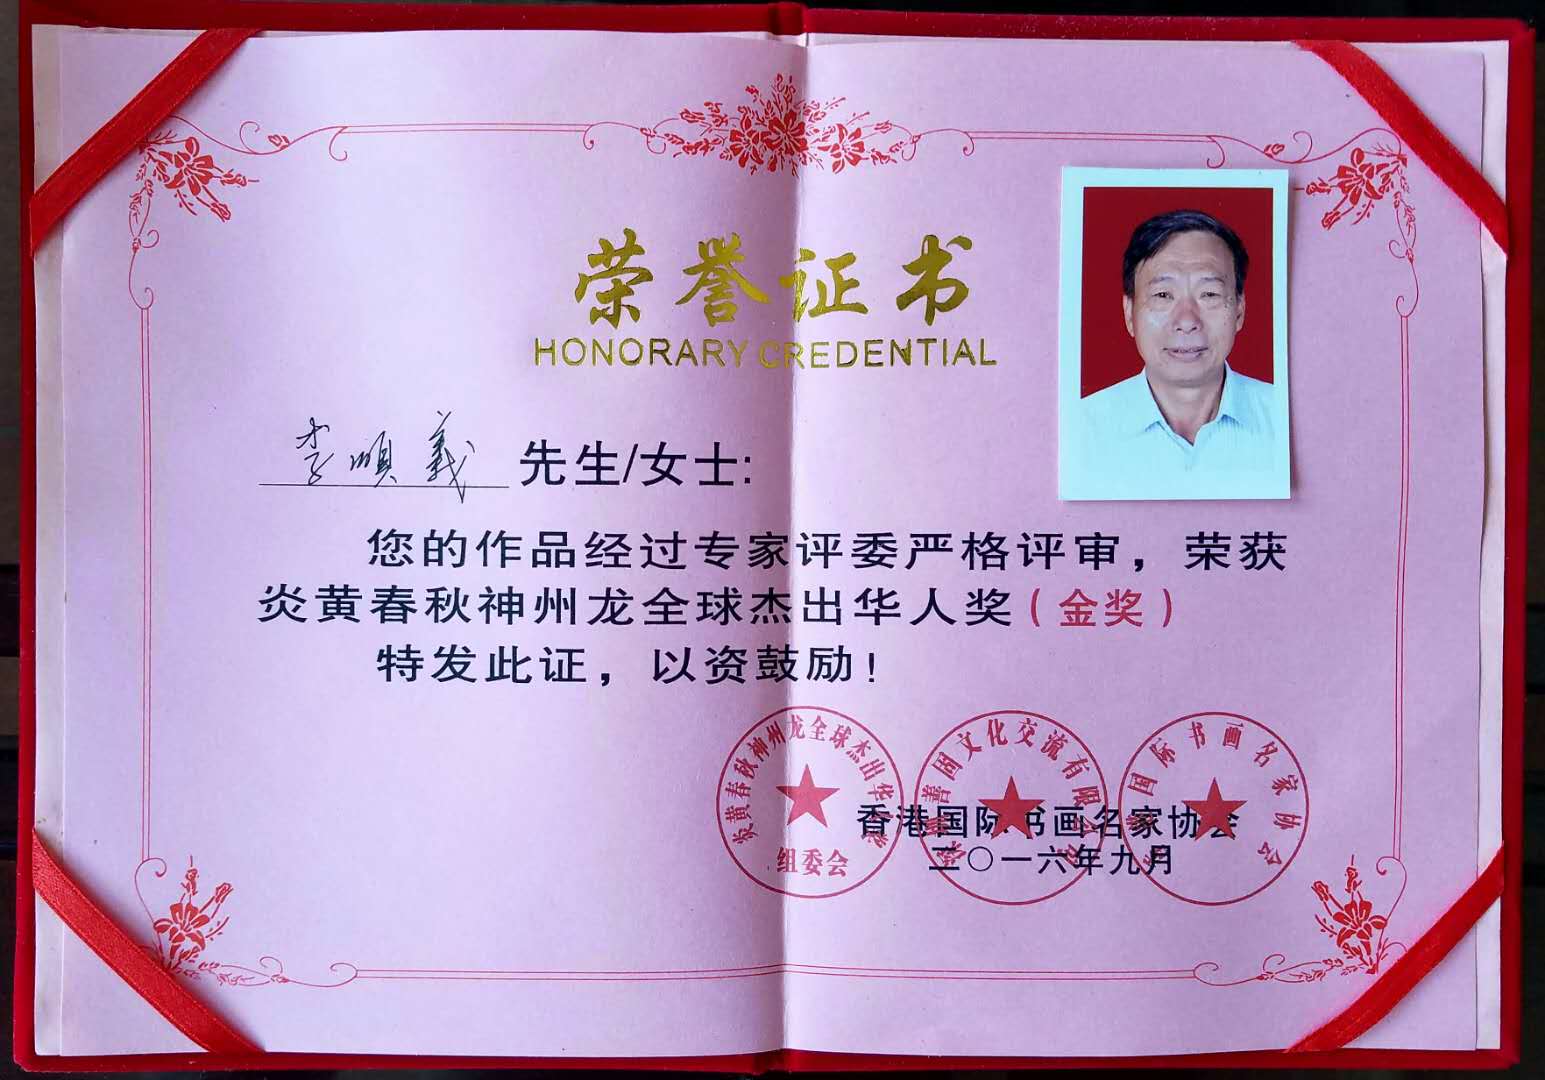 荣誉证书
HONORARY CREDENTIAL
李顺義 先生/女士:
您的作品经过专家评委严格评审，荣获
炎黄春秋神州龙全球杰出华人奖（金奖）
特发此证，以资鼓励！
炎黄春秋神州龙全球杰出华
组委会
善固文化交流有限
国际书画名家协会
香港国际书画名家协会
二〇一六年九月